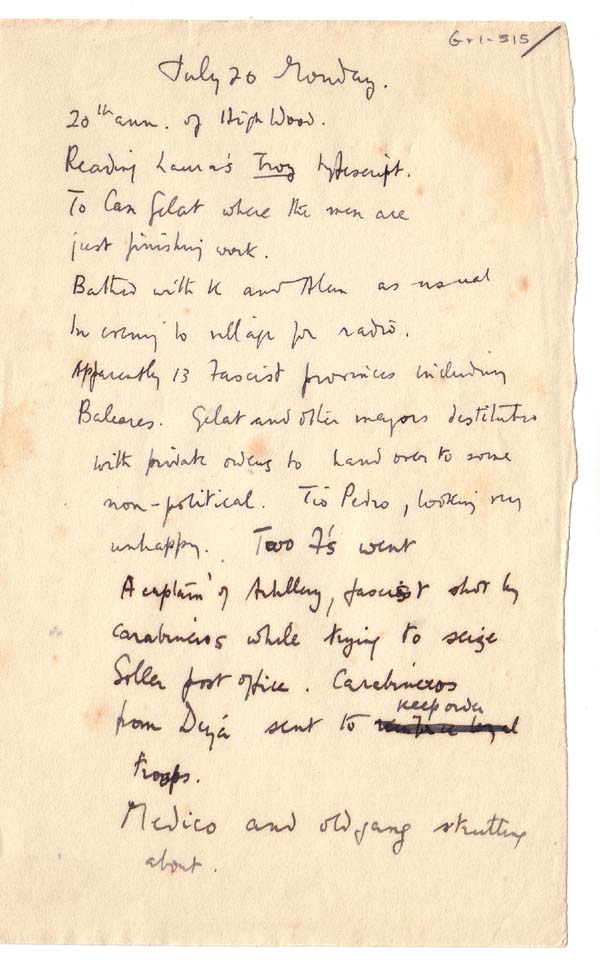 G-1-515
July 20 Monday.
20th ann. of High Wood.
Reading Laura's Troy typescript.
To Can Gelat where the men are
just finishing work.
Bathed with K and Alan as usual
In evening to village for radio.
Apparently 13 Fascist provinces including
Baleares. Gelat and other mayors destituted
with private orders to hand over to some
non-political. Tio Pedro, looking very
unhappy. Two F's went
A captain of Artillery, fascist shot by
carabineros while trying to seize
Soller post office. Carabineros
keep order
from Deyá sent to reinforce loyal
troops.
Medico and old gang strutting
about.